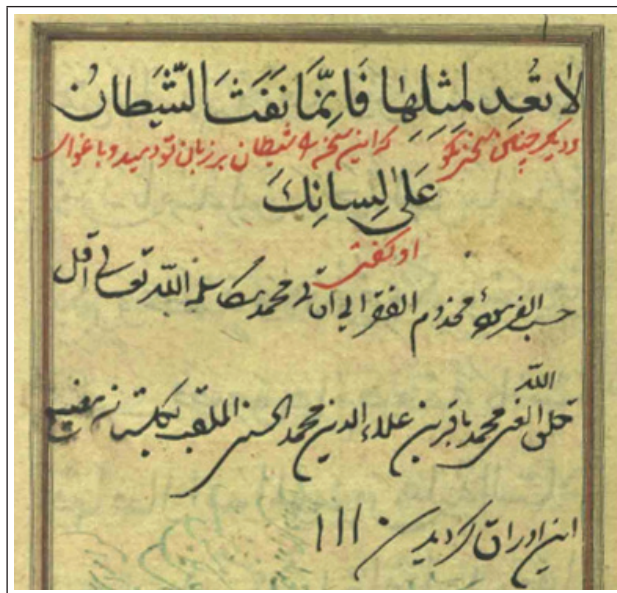 لا تعد لمثلها فانما نفث الشیطان
ودیکر چنین سخن مکو که این سخن شیطان بر زبان تو دمید و باغوای
علی لسانك
او کفتی
حسب الفرموده مخدوم الفقرا محمد سلمه الله تعالی اقل
خلق الله الغنی محمد باقر بن علاء الدین محمد الحسنی الملقب بکلستانه
این اوراق کردید ۱۱۱۰